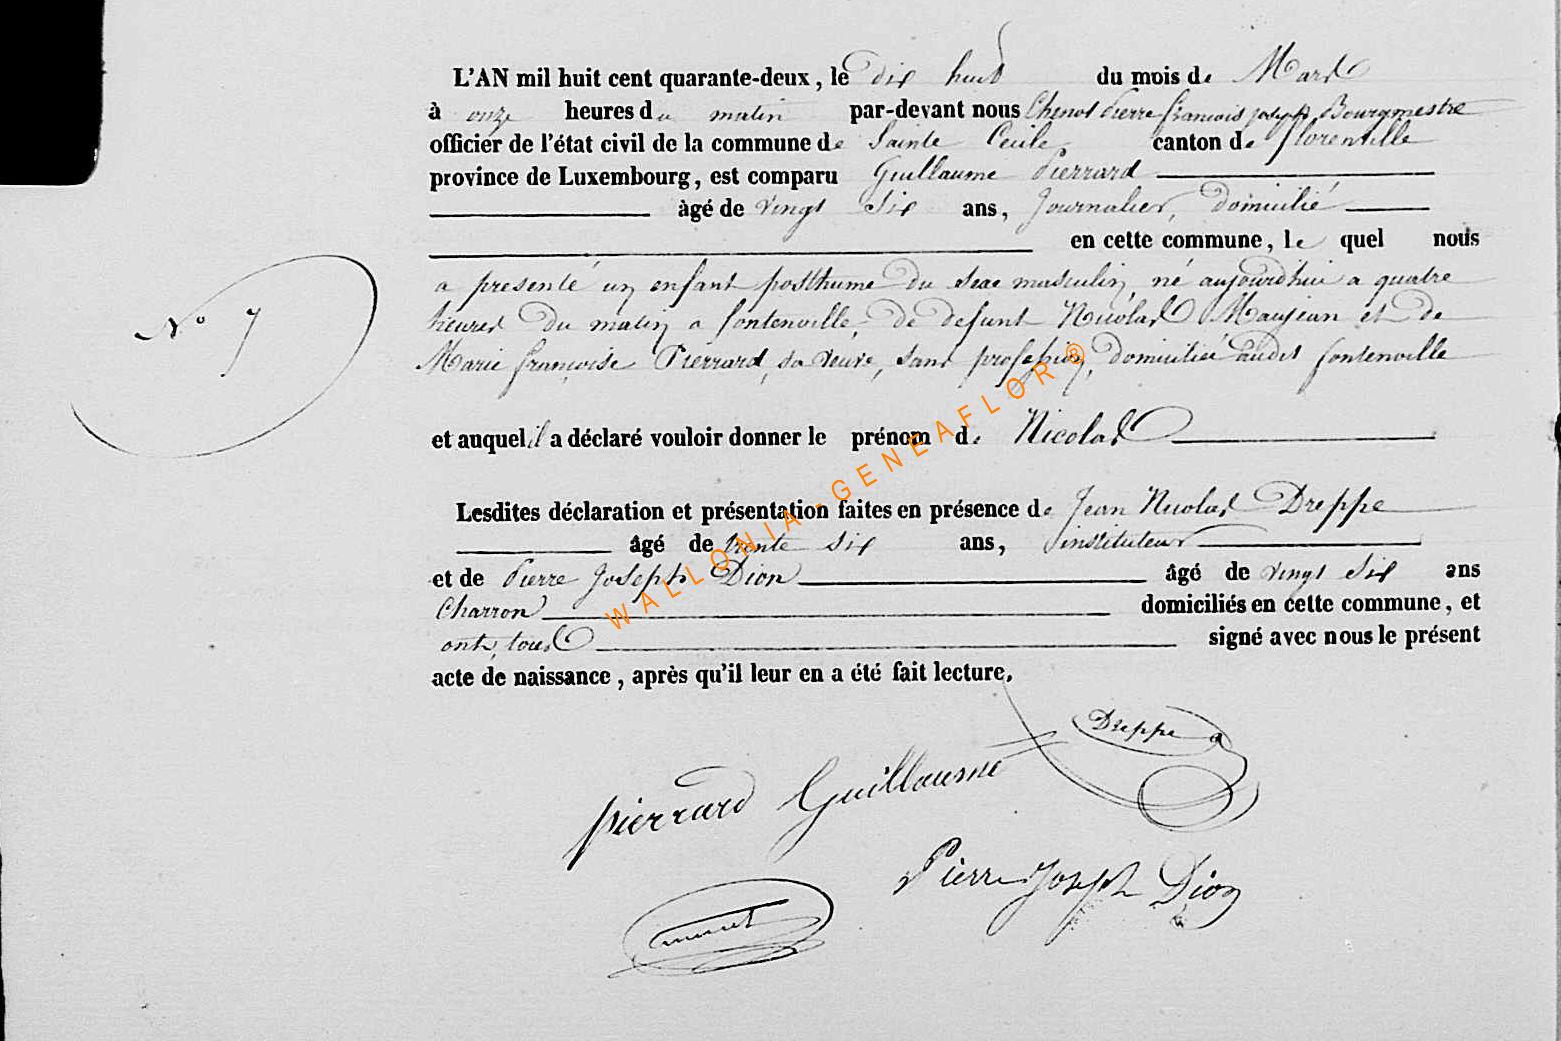 L'AN mil huit cent quarante-deux, le dix huit du mois de Mars
à onze heures du matin par-devant nous Chenot Pierre françois joseph Bourgmestre
officier de l'état civil de la commune de Sainte Cecile canton de florenville
province de Luxembourg, est comparu Guillaume Pierrard
âgé de vingt six ans, Journalier, domicilié
en cette commune, le quel nous
a presenté un enfant posthume du sexe masculin, né aujourdhui a quatre
heures du matin a fontenoille, de defunt Nicolas Maujean et de
Marie françoise Pierrard, sa veuve, sans profession, domiciliée audit fontenoille
N° 7
et auquel il a déclaré vouloir donner le prénom de Nicolas
Lesdites déclaration et présentation faites en présence de Jean Nicolas Dreppe
âgé de trente six ans, instituteur
et de Pierre Joseph Dion âgé de vingt six ans
Charron domiciliés en cette commune, et
ont tous signé avec nous le présent
acte de naissance, après qu'il leur en a été fait lecture.
Dreppe
pierrard Guillaume
Pierre Joseph Dion
WALLONIA-GENEAFLOR®